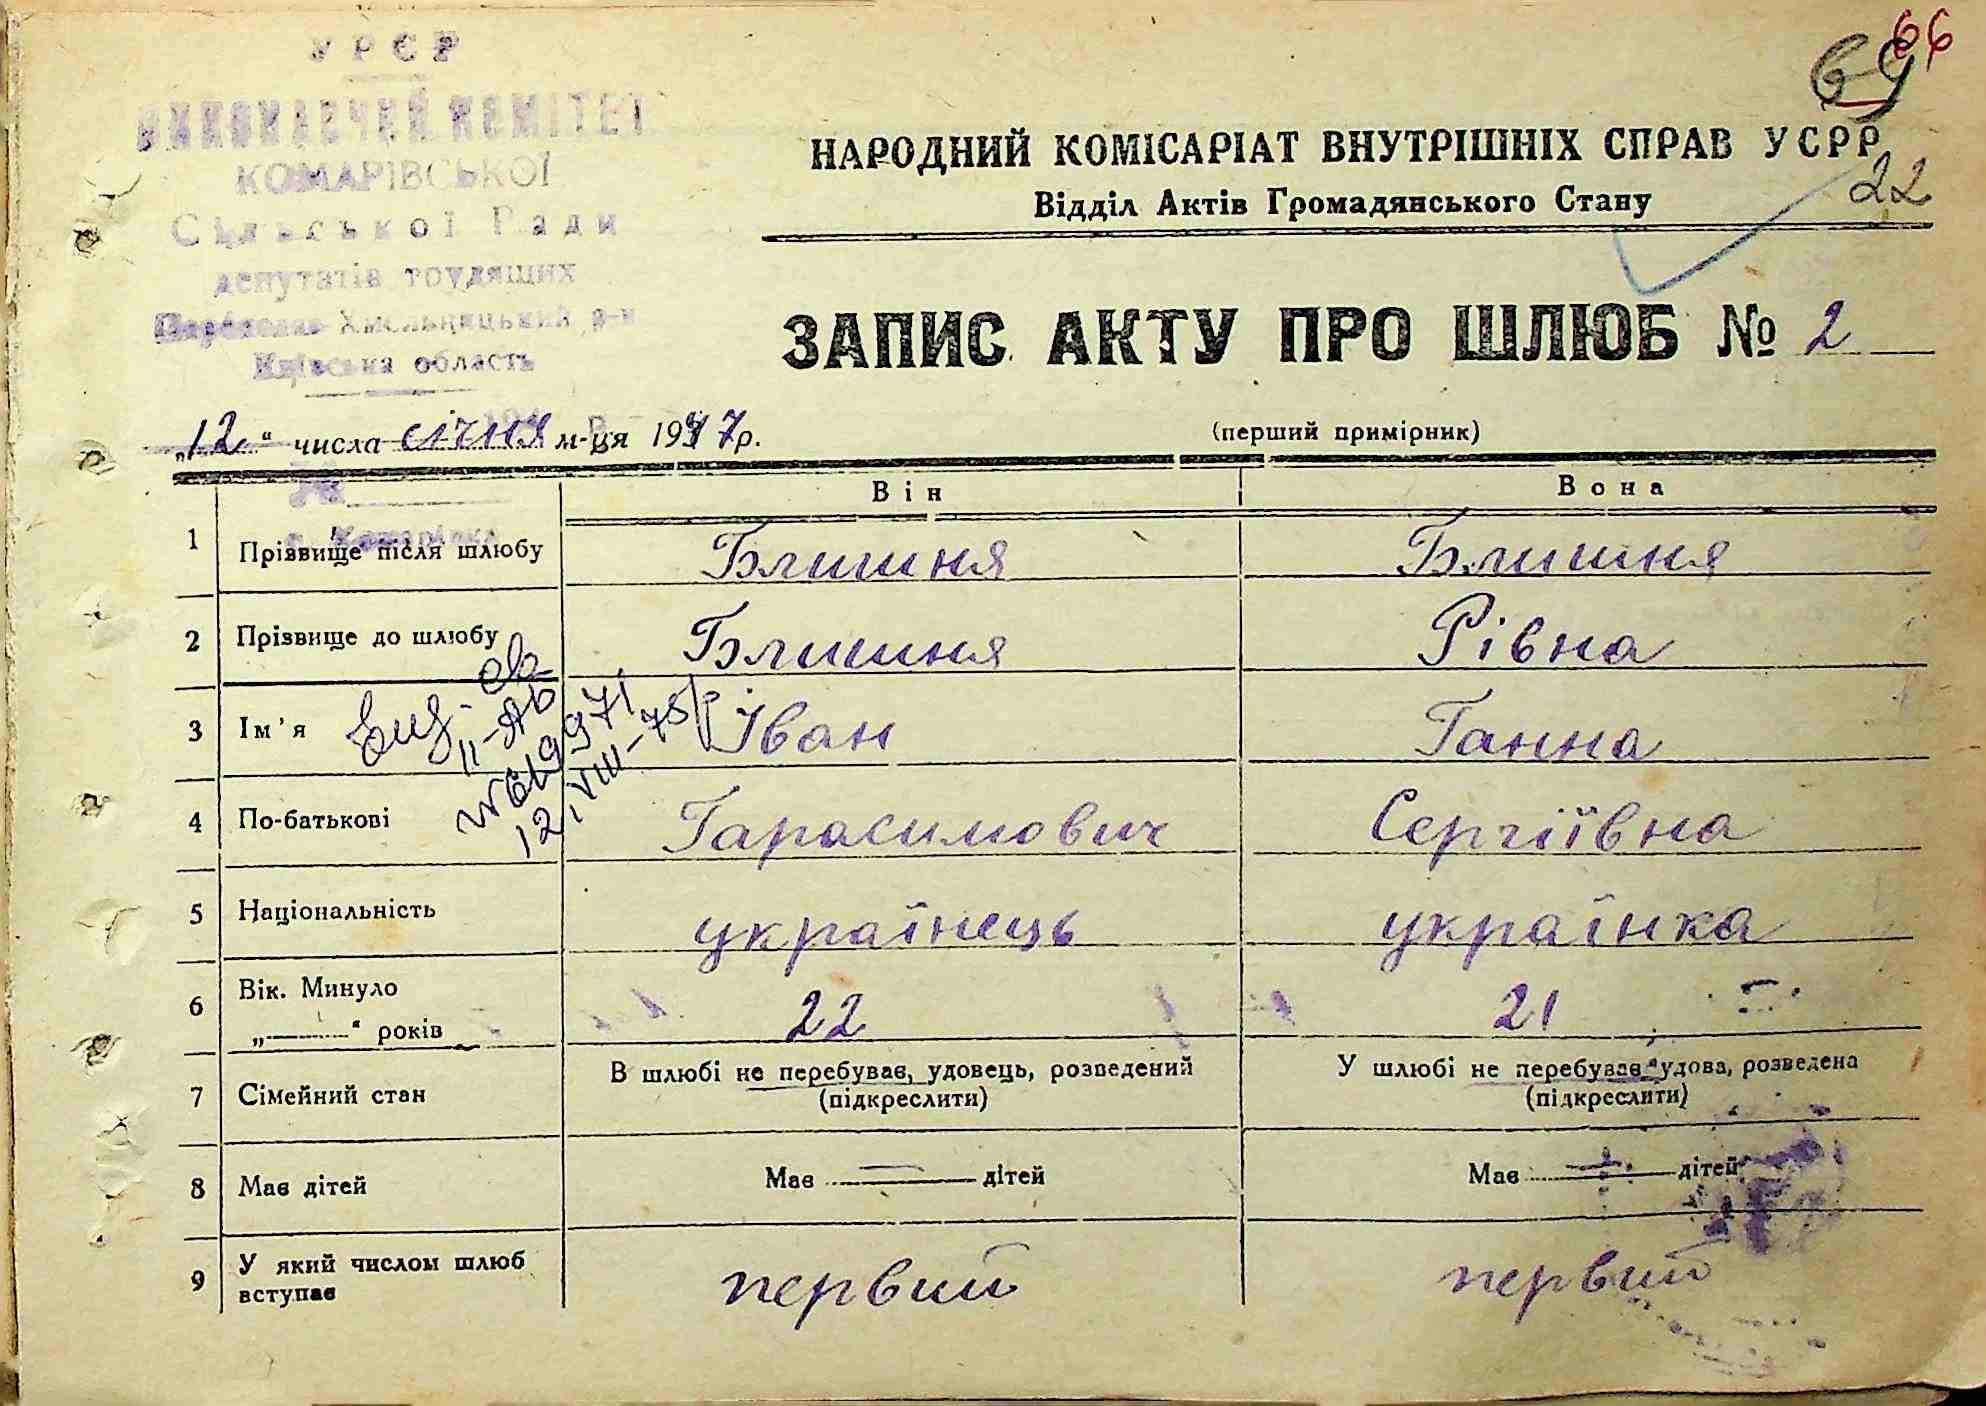 УРСР
ВИКОНАВЧИЙ КОМІТЕТ
КОМАРІВСЬКОЇ
Сільської Ради
депутатів трудящих
Переяслав Хмельницький р-н
Київська область
66
69
22
НАРОДНИЙ КОМІСАРІАТ ВНУТРІШНІХ СПРАВ УСРР
Відділ Актів Громадянського Стану
ЗАПИС АКТУ ПРО ШЛЮБ № 2
„12“ числа січня м-ця 1947р.
(перший примірник)
Він Вона
с. Комарівка
1 Прізвище після шлюбу Блишня Блишня
2 Прізвище до шлюбу Блишня Рівна
3 Ім'я Іван Ганна
II-АЬ
12/VIII-75р
4 По-батькові Гарасимович Сергіївна
5 Національність українець українка
6 Вік. Минуло
„ “ років 22 21
7 Сімейний стан В шлюбі не перебував, удовець, розведений У шлюбі не перебував удова, розведена
(підкреслити) (підкреслити)
8 Має дітей Має — дітей Має — дітей
9 У який числом шлюб
вступає первий первий